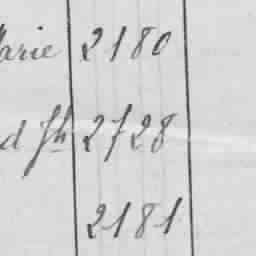 Marie 2180
d Jh 2728
2181